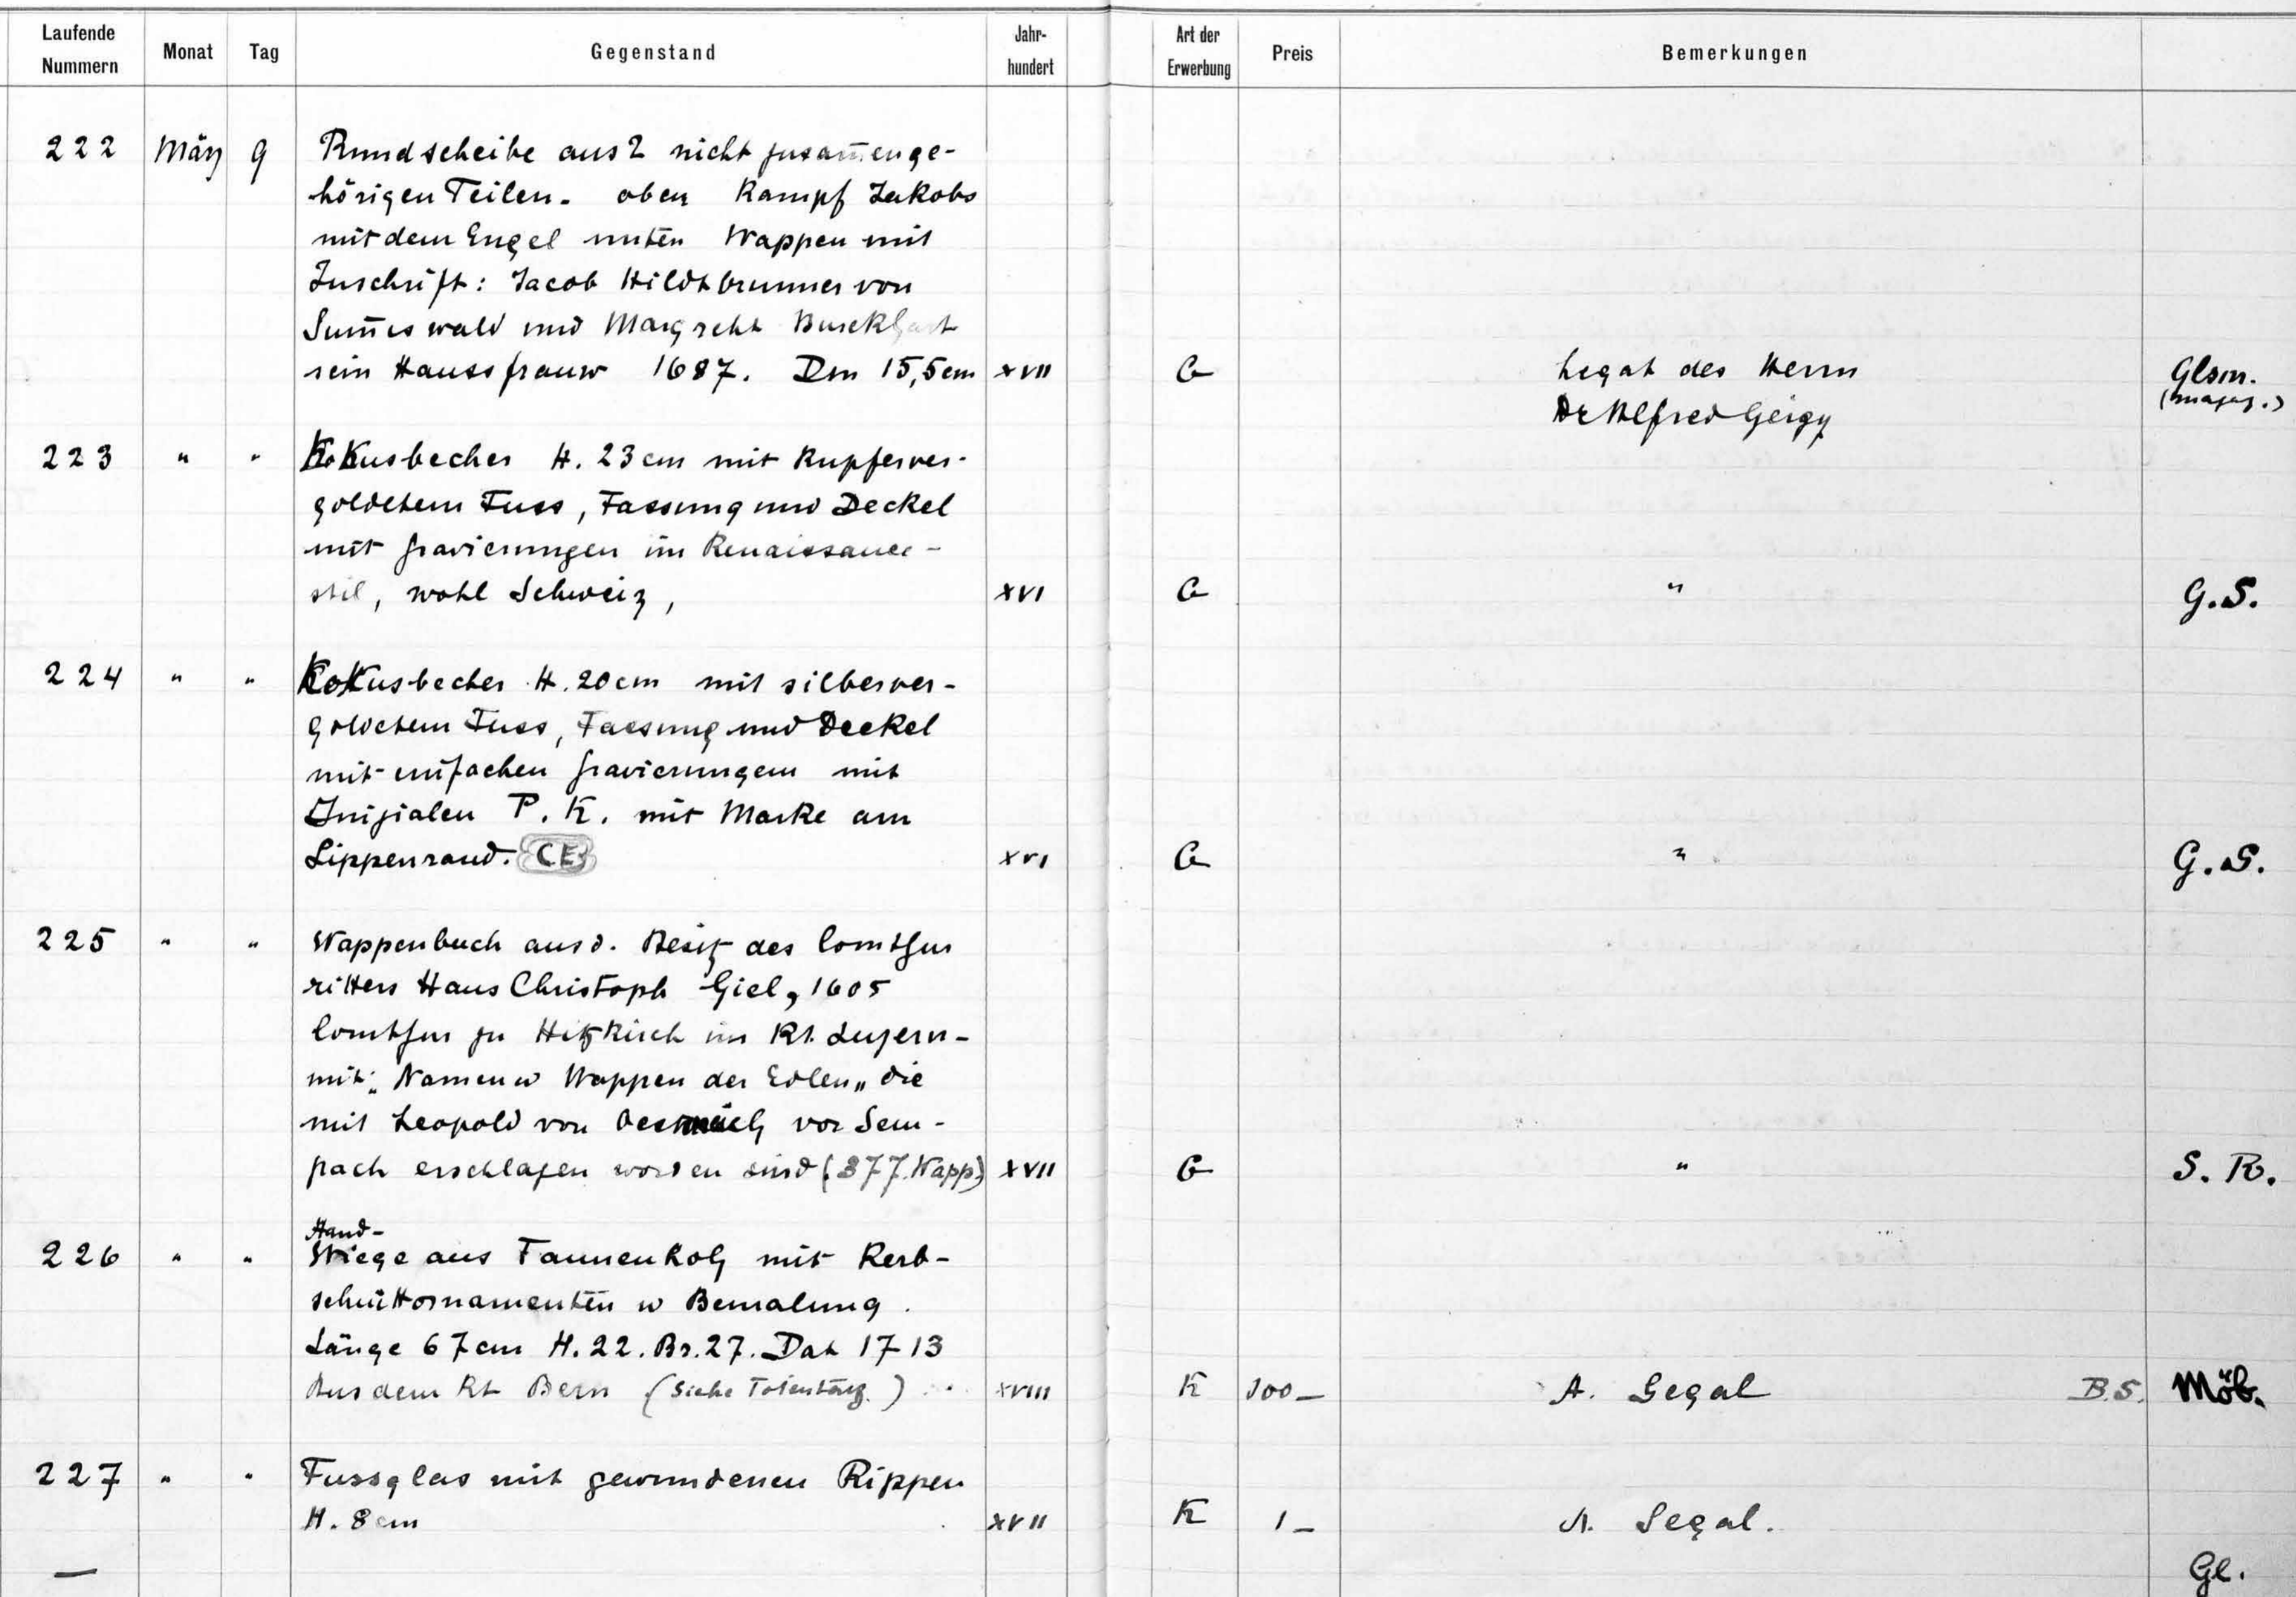 Laufende Nummern Monat Tag Gegenstand Jahr-hundert Art der Erwerbung Preis Bemerkungen
222 März 9 Rundscheibe aus 2 nicht zusam̅enge-
hörigen Teilen. oben Kampf Jakobs
mit dem Engel unten Wappen mit
Inschrift: Jacob Hildtbrunner von
Sum̅iswald und Margreht Burckhart
sein Haussfrauw 1687. Dm 15,5cm XVII G Legat des Herrn Glsm.
Dr Alfred Geigy (magaz.)
223 " " Kokusbecher H. 23cm mit Kupferver-
goldetem Fuss, Fassung und Deckel
mit Gravierungen im Renaissance-
stil, wohl Schweiz, XVI G " G.S.
224 " " Kokusbecher H. 20cm mit silberver-
goldetem Fuss, Fassung und Deckel
mit einfachen Gravierungem mit
Inizialen P. K. mit Marke am
Lippenrand. CE XVI G " G.S.
225 " " Wappenbuch aus d. Besitz des Comthur
ritters Hans Christoph Giel, 1605
Comthur zu Hitzkirch im Kt. Luzern-
mit: "Namen u Wappen der Edlen" die
mit Leopold von Oestreich vor Sem-
pach erschlagen worden sind (377. Wapp) XVII G " S. R.
Hand-
226 " " Wiege aus Tannenholz mit Kerb-
schnittornamenten u Bemalung.
Länge 67cm H. 22. Br. 27. Dat 1713
Aus dem Kt Bern (Siehe Totentanz.) XVIII K 100_ A. Segal B.S. Möb.
227 " " Fussglas mit gewundenen Rippen
H. 8cm XVII K 1_ A. Segal.
— Gl.